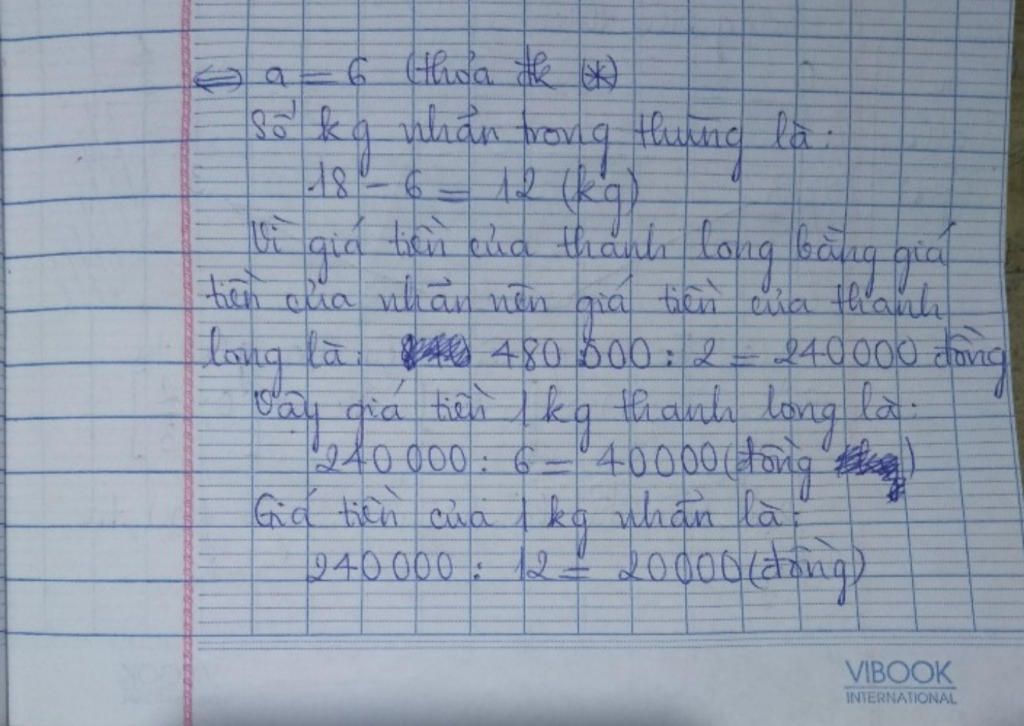 ⇔ a = 6 (thỏa đk (*)
Số kg nhãn trong thùng là:
18 - 6 = 12 (kg)
Vì giá tiền của thanh long bằng giá
tiền của nhãn nên giá tiền của thanh
long là: 480 000 : 2 = 240000 đồng
Vậy giá tiền 1 kg thanh long là:
240 000 : 6 = 40000 (đồng )
Giá tiền của 1 kg nhãn là:
240000 : 12 = 20000 (đồng)
VIBOOK
INTERNATIONAL